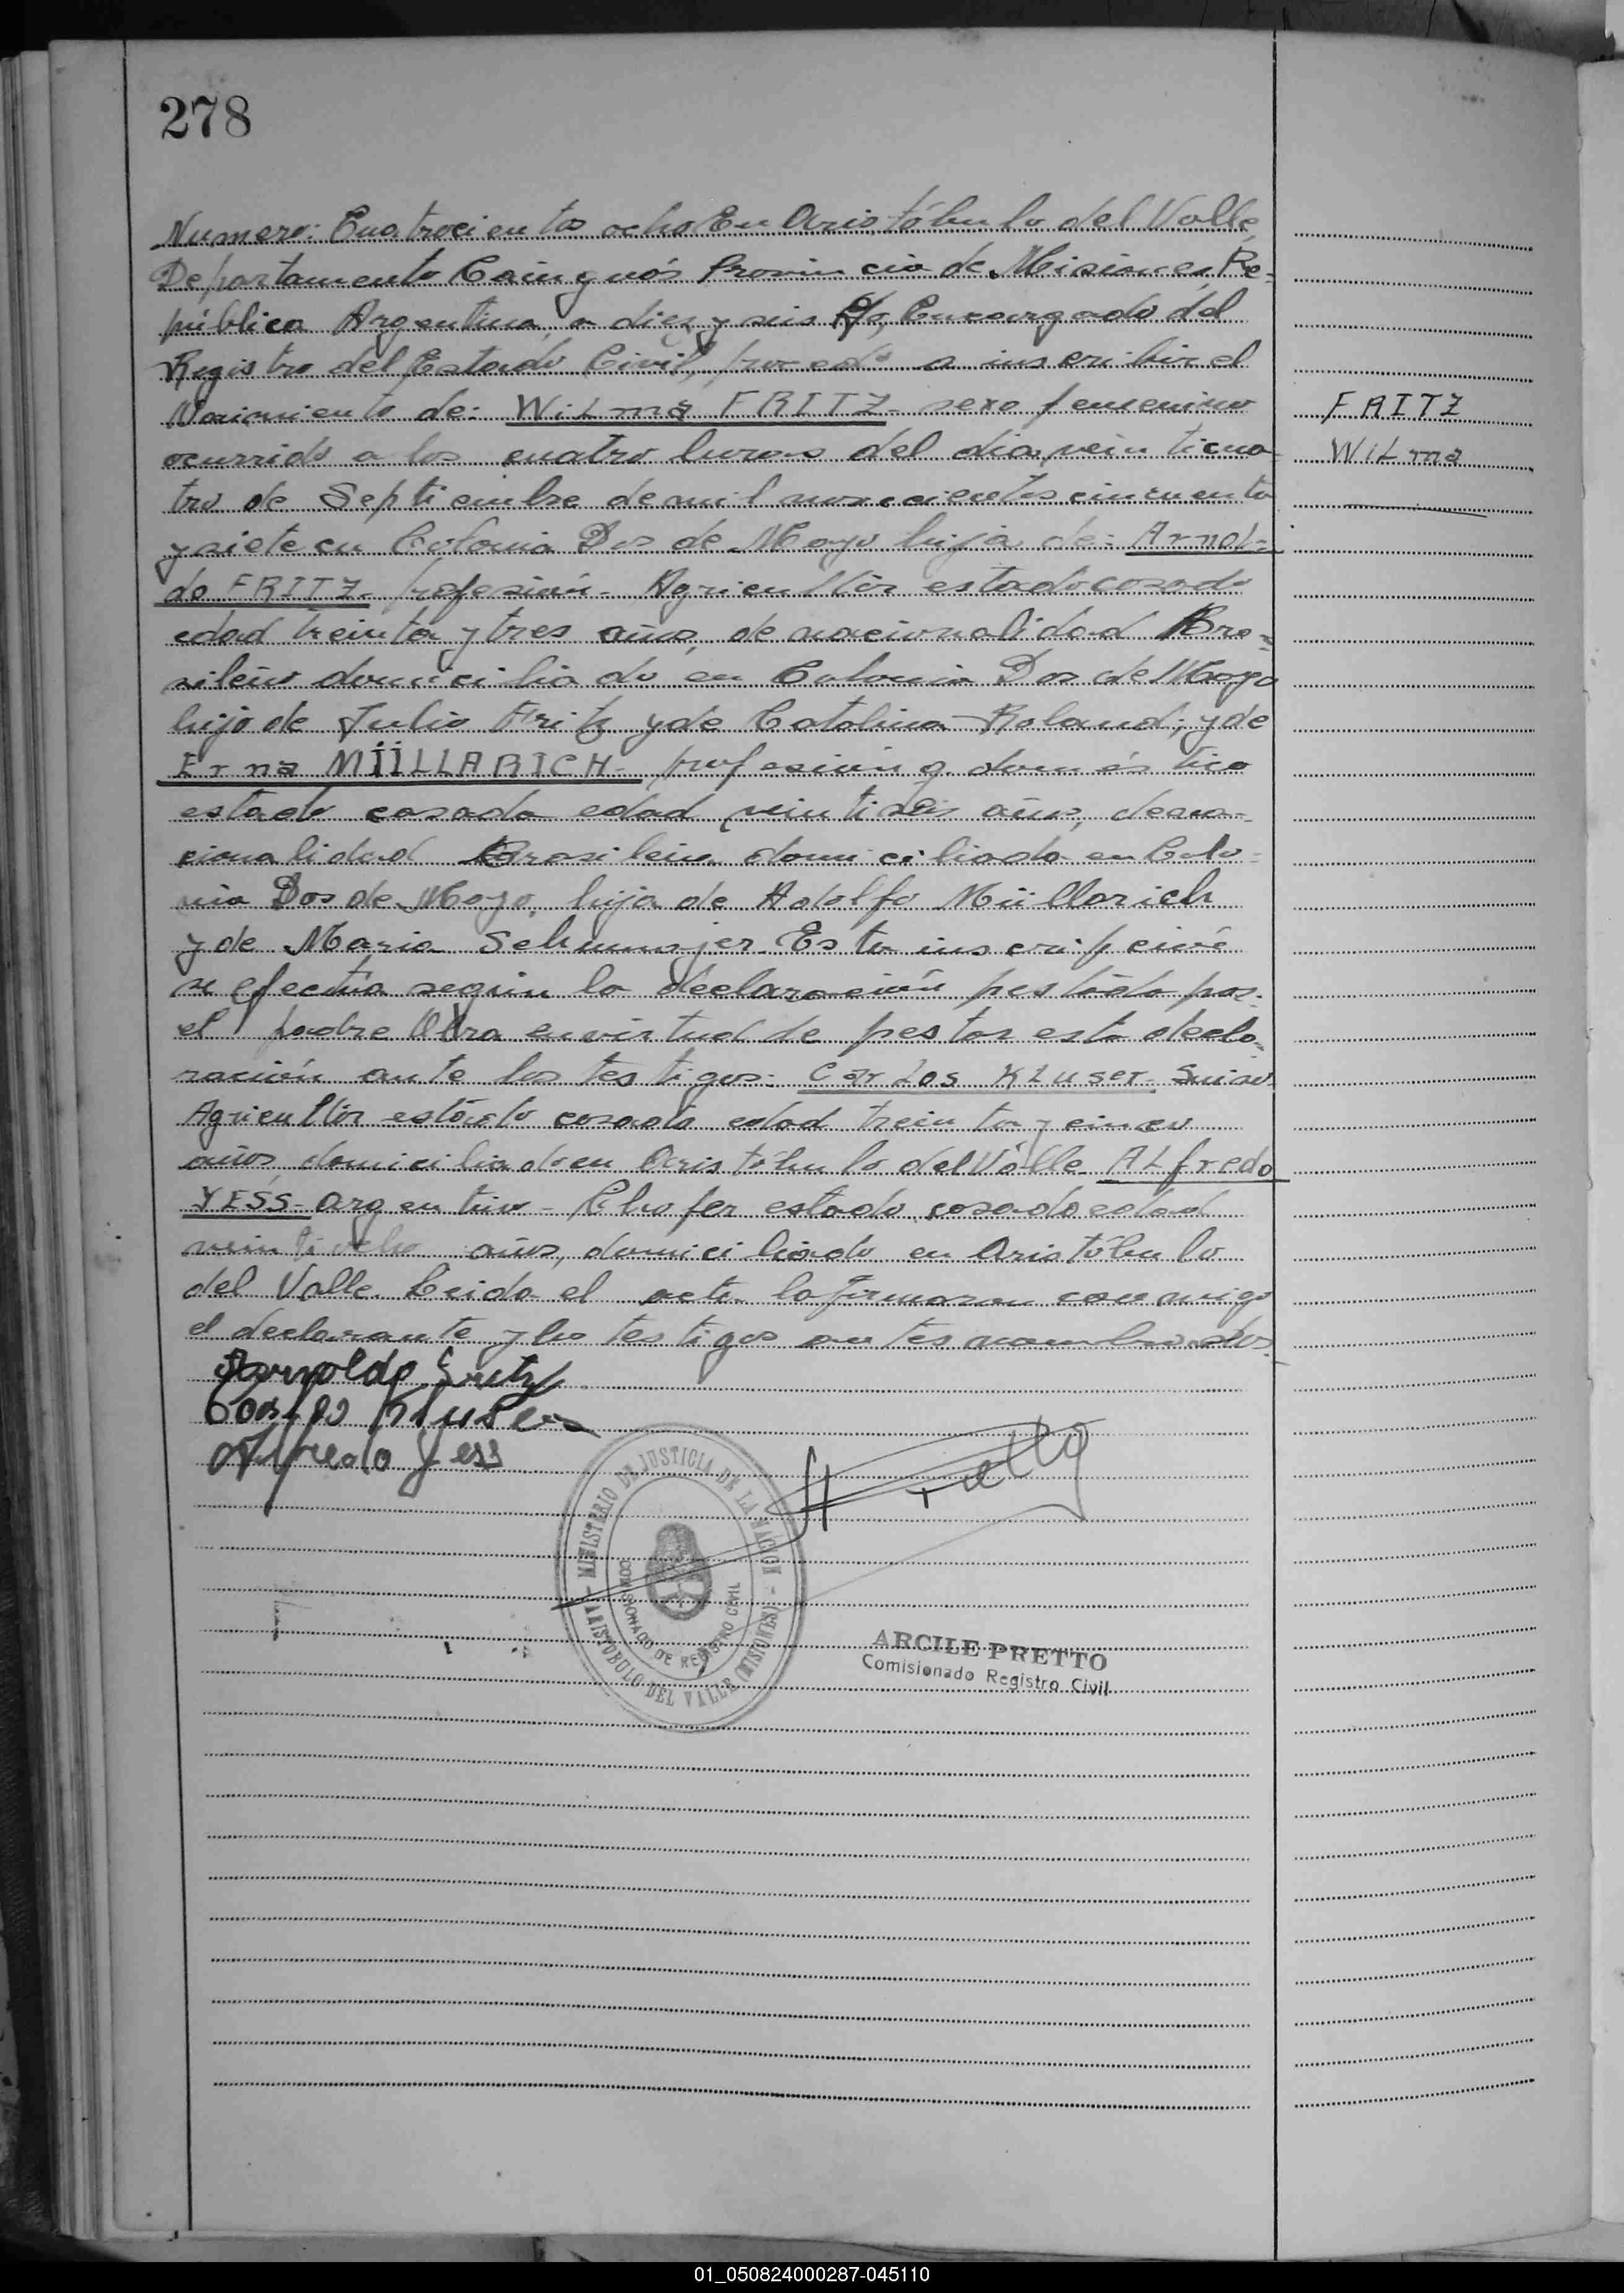 278
Numero: Cuatrocientos ocho En Aristóbulo del Valle,
Departamento Cainguás Provincia de Misiones, Re=
pública Argentina, a diez y seis Yo, Encargado del
Registro del Estado Civil, procedo a inscribir el
Nacimiento de: WiLma FRITZ- sexo femenino
ocurrido a los cuatro horas del dia veinticua
tro de Septiembre de mil novecientos cincuenta
y siete en Colonia Dos de Mayo hija de: Arnol-
do FRITZ- profesión- Agricultor estado casado
edad treinta y tres años, de nacionalidad Bra=
sileño domiciliado en Colonia Dos de Mayo
hijo de Julio Fritz y de Catalina Roland; y de
Erna MÜLLARICH- profesión q. doméstico
estado casada edad veintiseis años, de na-
cionalidad Brasileña domiciliada en Colo=
nia Dos de Mayo, hija de Adolfo Müllarich
y de Maria Schumajer. Esta inscripción
se efectúa según la declaración pestada por
el padre Obra en virtud de pestar esta decla-
ración ante los testigos: CarLos KLuser- Suizo
Agricultor estado casado edad treinta y cinco
años domiciliado en Aristóbulo del Valle ALfredo
YESS- argentino- Chofer estado casado edad
veintiocho años, domiciliado en Aristóbulo
del Valle. Leida el acta la firmaron conmigo
el declarante y los testigos antes nombrados.
Arnoldo Fritz
Carlos Kluser
Alfredo Yess
MINISTERIO DE JUSTICIA DE LA NACION
COMISIONADO DE REGISTRO CIVIL
ARISTOBULO DEL VALLE (MISIONES)
ARCILE PRETTO
Comisionado Registro Civil
FRITZ
WiLma
01_050824000287-045110